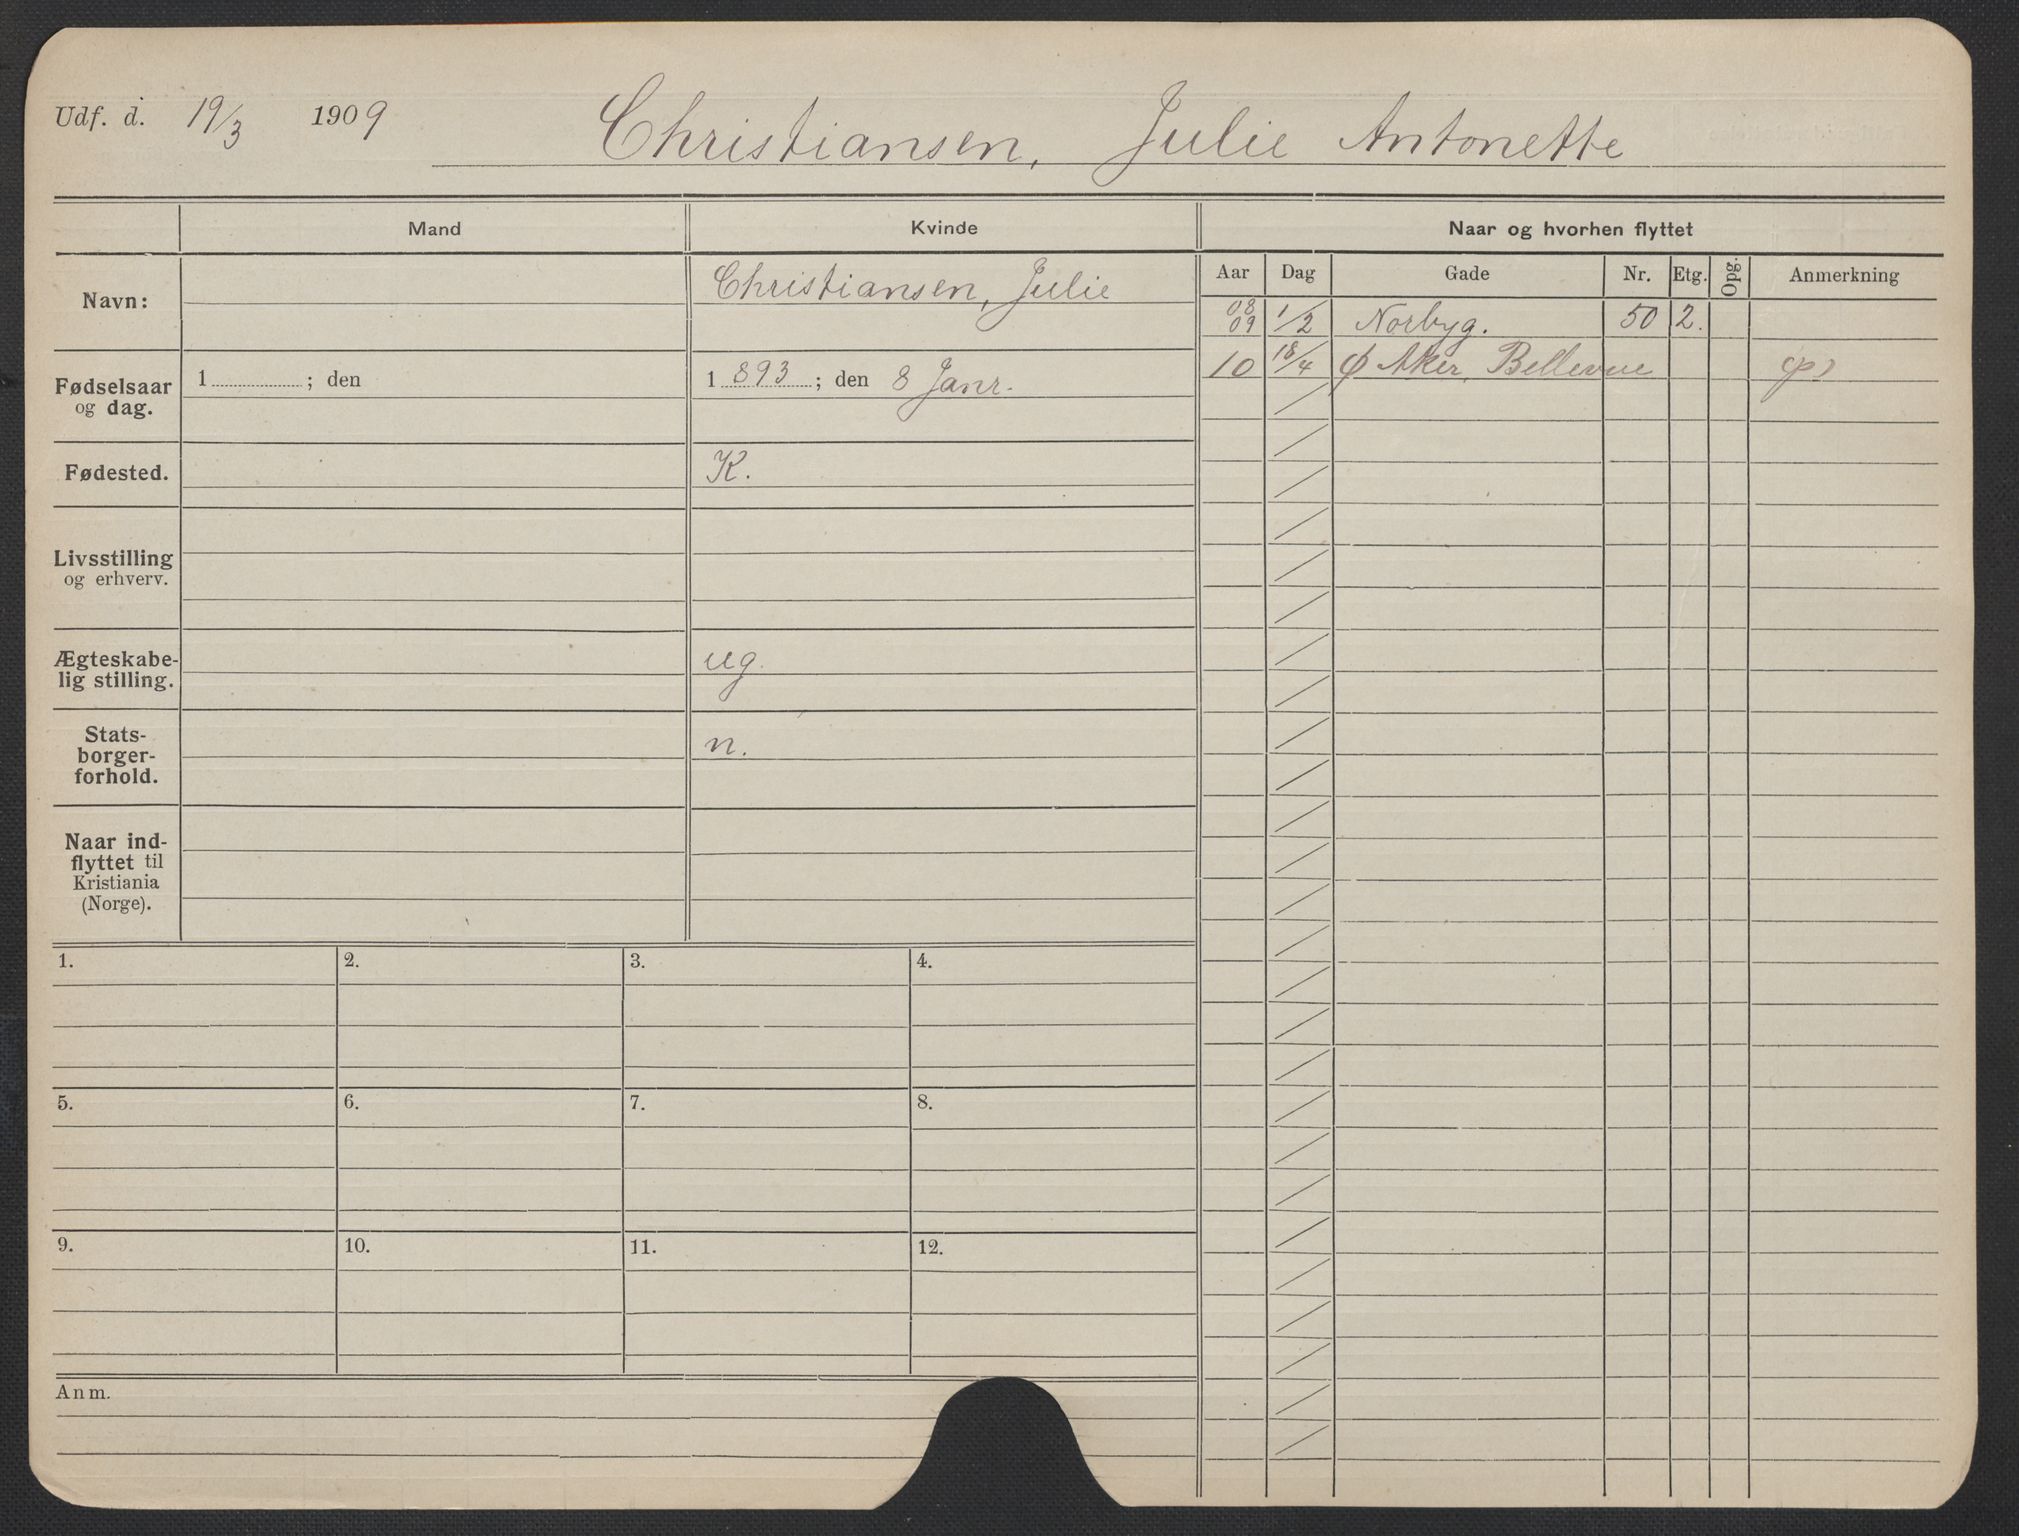 Udf. d. 19/3 1909 Christiansen, Julie Antonette
Mand Kvinde Naar og hvorhen flyttet
Aar Dag Gade Nr. Etg. Opg. Anmerkning
Navn: Christiansen, Julie
08
09 1/2 Norbyg. 50 2.
10 18/4 Ø Aker, Bellevue
Fødselsaar
og dag. 1 ; den 1 893 ; den 8 Janr.
Fødested. K.
Livsstilling
og erhverv.
Ægteskabe-
lig stilling. ug.
Stats-
borger-
forhold. n.
Naar ind-
flyttet til
Kristiania
(Norge).
1. 2. 3. 4.
5. 6. 7. 8.
9. 10. 11. 12.
Anm.